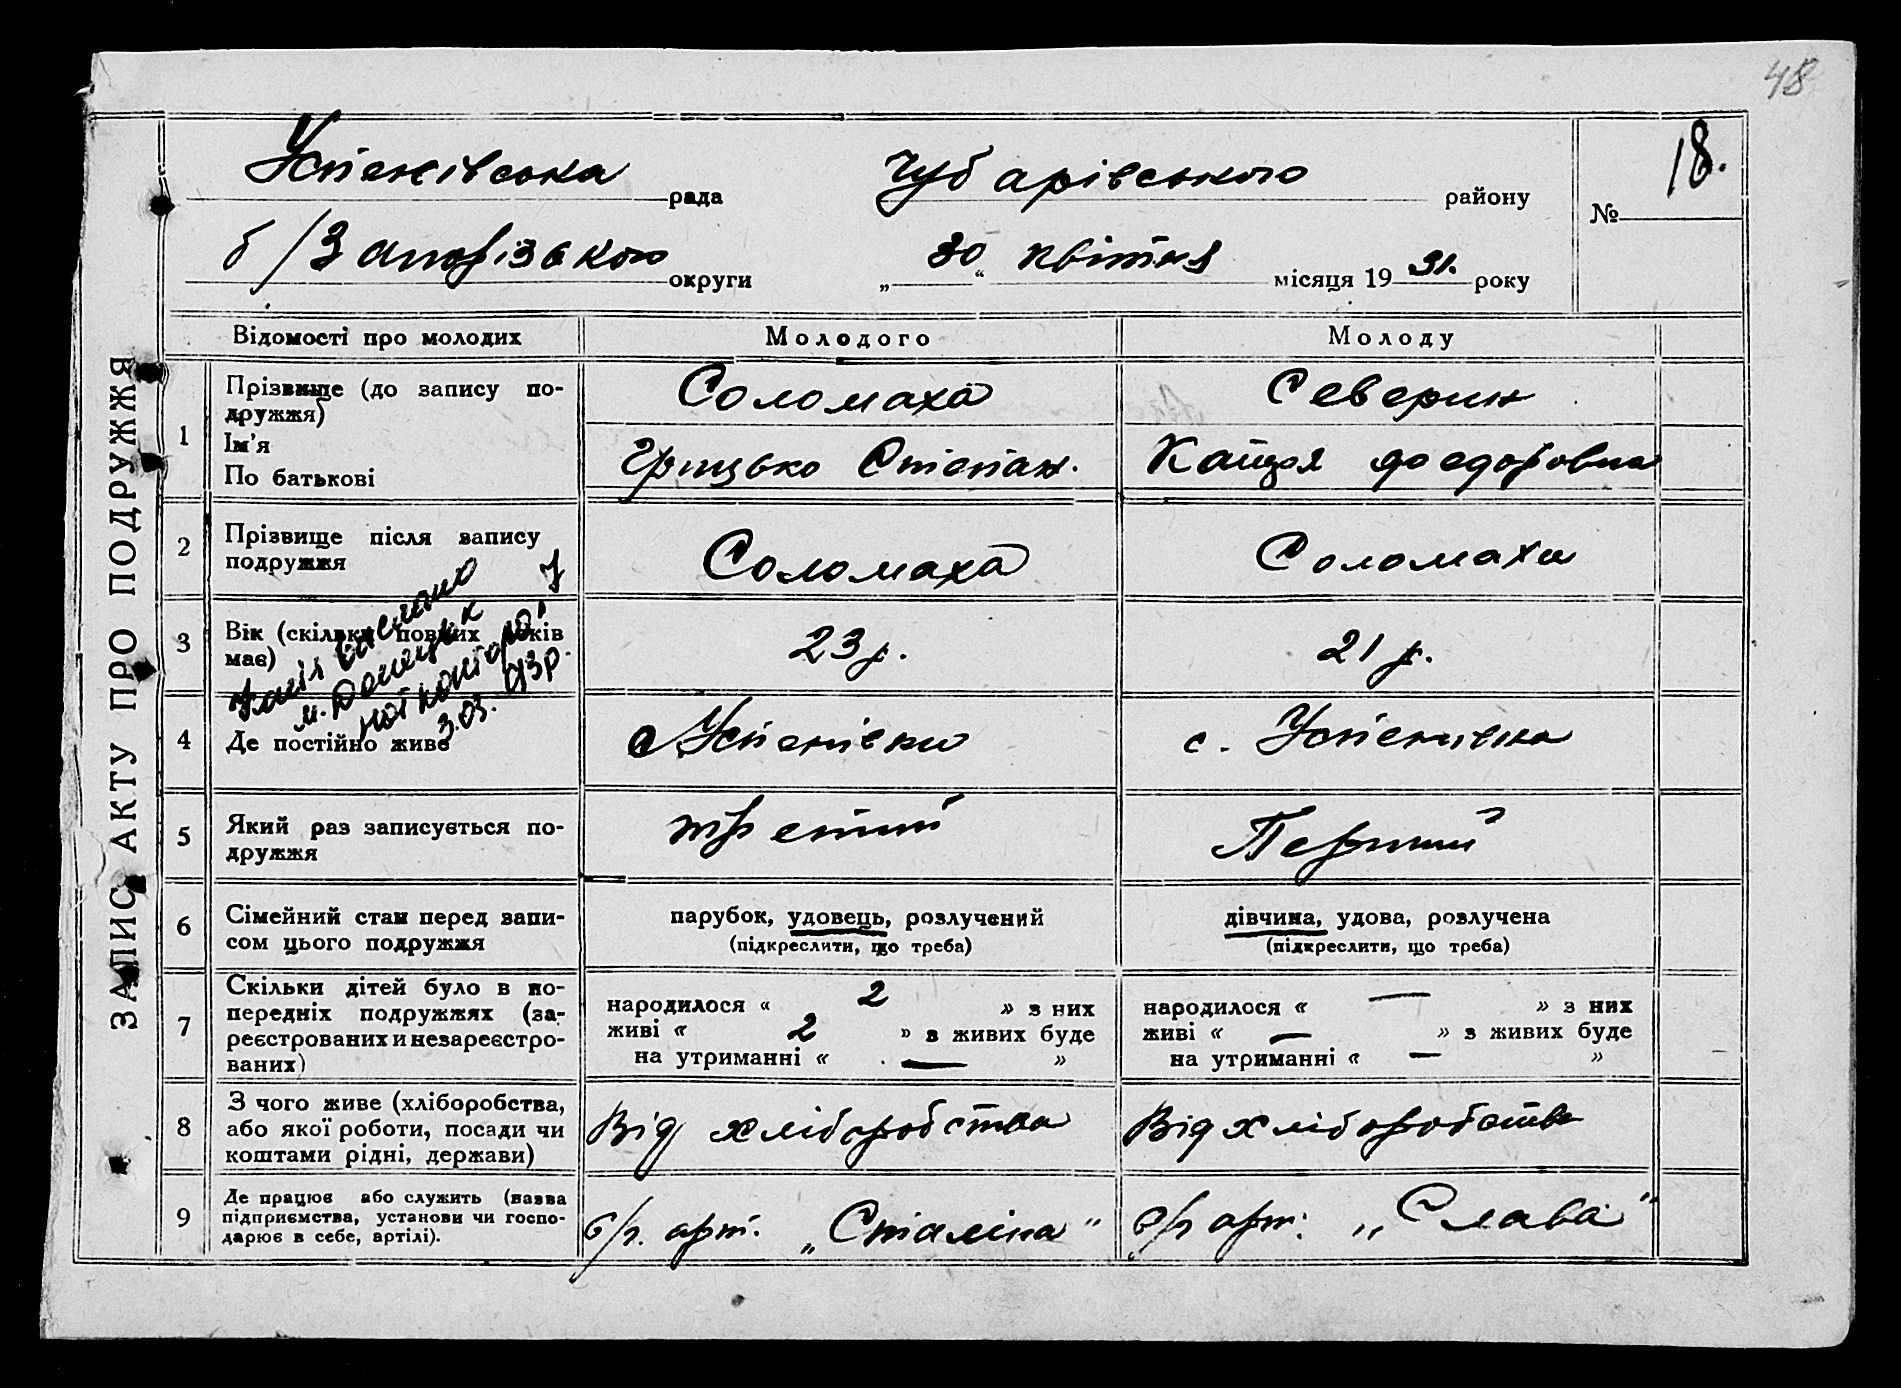 48
Успенівська рада Чубарівського району № 18.
б/Запорізькою округи „30“ квітня місяця 1931. року
ЗАПИС АКТУ ПРО ПОДРУЖЖЯ
Відомості про молодих Молодого Молоду
1 Прізвище (до запису по-
дружжя) Соломаха Северин
Ім'я
По батькові Грицько Степан. Катря Федоровна
2 Прізвище після запису
подружжя Соломаха Соломаха
3 Вік (скільки повних років
має) 23 р. 21 р.
вислано
м. Донецьк
нотконтора
3.03. 93р.
4 Де постійно живе с Успенівки с. Успенівка
5 Який раз записується по-
дружжя третий Перший
6 Сімейний стан перед запи-
сом цього подружжя
парубок, удовець, розлучений
(підкреслити, що треба)
дівчина, удова, розлучена
(підкреслити, що треба)
7 Скільки дітей було в по-
передніх подружжях (за-
реєстрованих и незареєстро-
ваних)
народилося « 2 » з них
живі « 2 » з живих буде
на утриманні « — »
народилося « — » з них
живі « — » з живих буде
на утриманні « — »
8 З чого живе (хліборобства,
або якої роботи, посади чи
коштами рідні, держави)
Від хліборобства Від хліборобства
9 Де працює або служить (назва
підприємства, установи чи госпо-
дарює в себе, артілі).
б/р. арт. „Сталіна" с/г арт. „Слава"